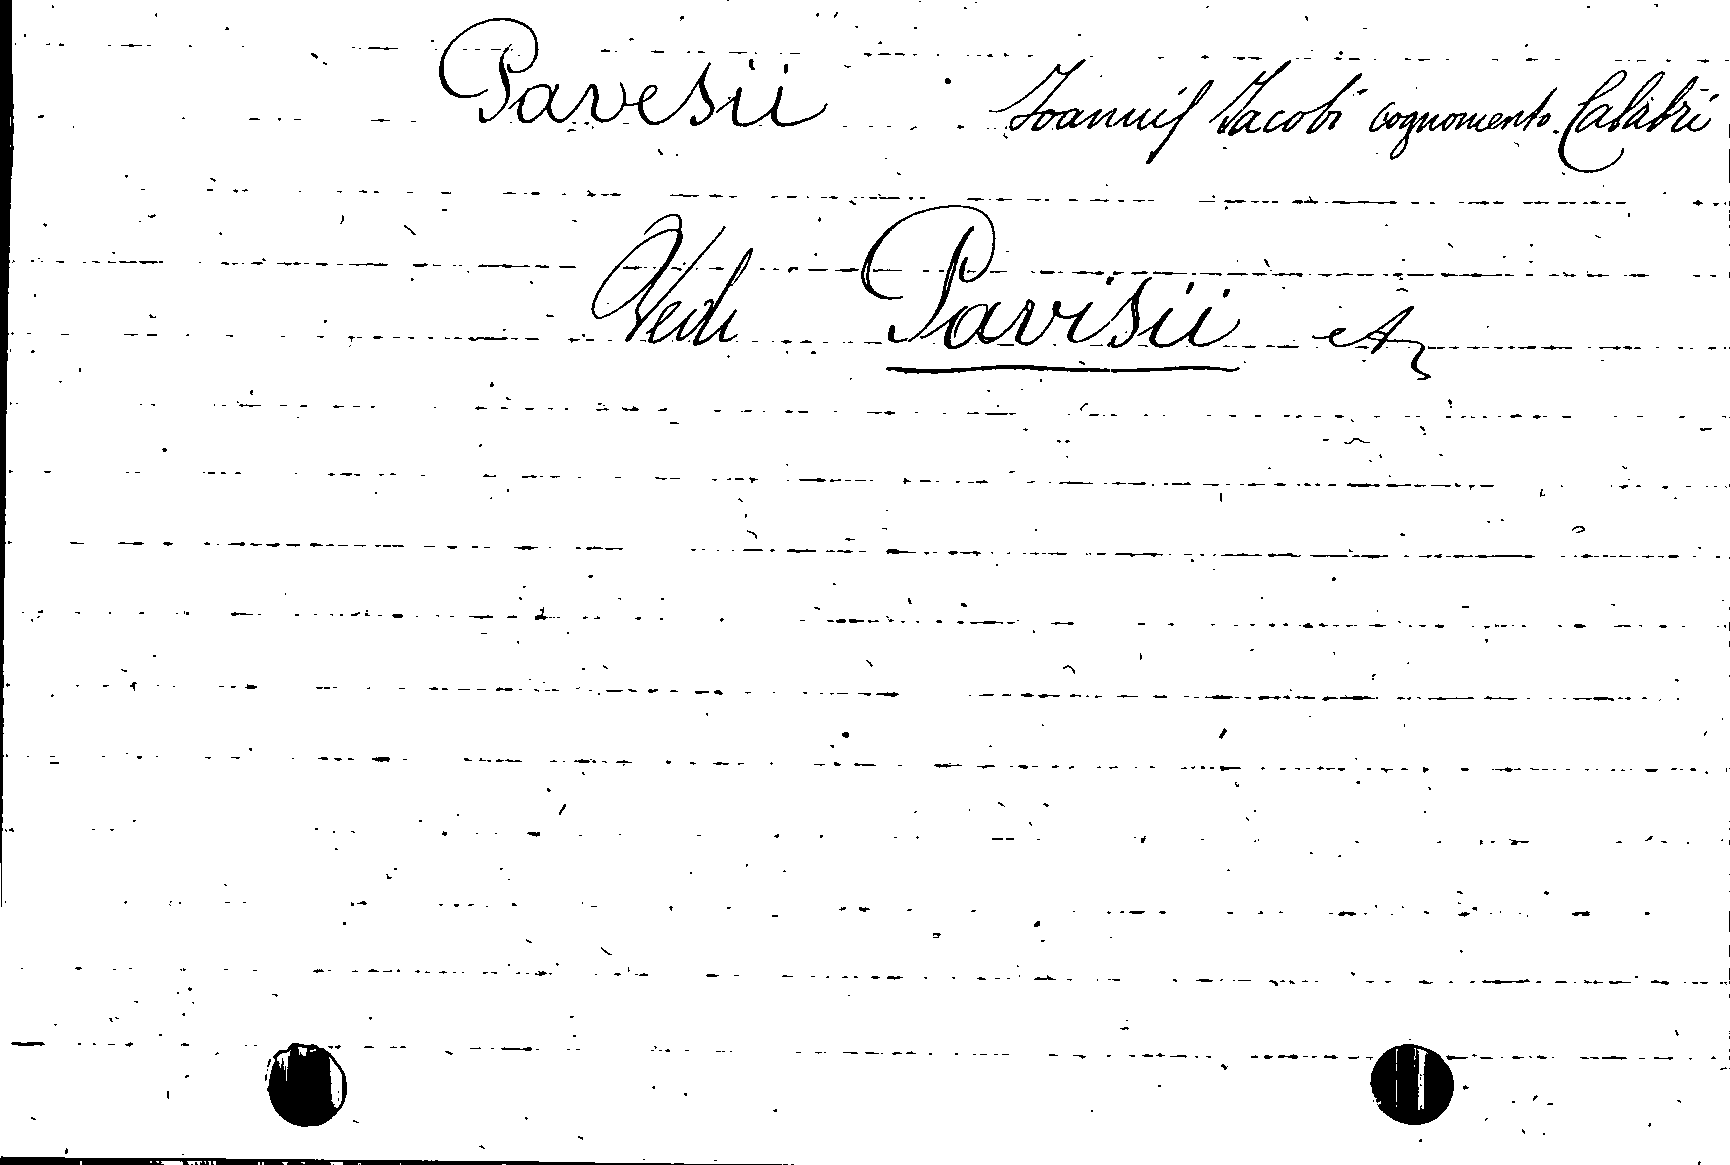 Pavesii Joannis Jacobi cognomento Calabri
Vedi Pavisii etc